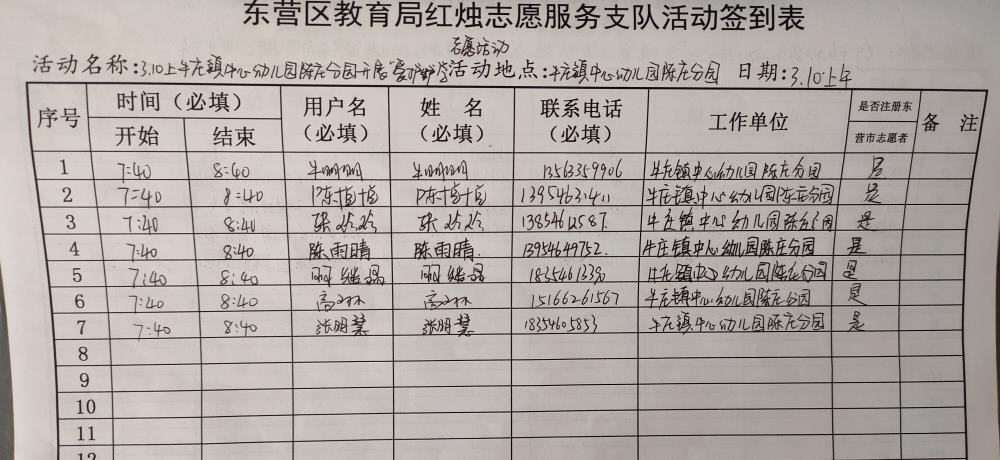 东营区教育局红烛志愿服务支队活动签到表
志愿活动
活动名称:3.10上午庄镇中心幼儿园陈庄分园开展"爱护 活动地点:牛庄镇中心幼儿园陈庄分园 日期:3.10上午
序号 时间（必填） 用户名（必填） 姓 名（必填） 联系电话（必填） 工作单位 是否注册东营市志愿者 备 注
开始 结束
1 7:40 8:40 牛明明 牛明明 牛庄镇中心幼儿园陈庄分园 是
2 7:40 8:40 陈 陈 牛庄镇中心幼儿园陈庄分园 是
3 7:40 8:40 张玲玲 张玲玲 13854612587. 牛庄镇中心幼儿园陈庄分园 是
4 7:40 8:40 陈雨晴 陈雨晴. 13954649752. 牛庄镇中心幼儿园陈庄分园 是
5 7:40 8:40 牛庄镇中心幼儿园陈庄分园 是
6 7:40 8:40 15166261567 牛庄镇中心幼儿园陈庄分园 是
7 7:40 8:40 张明慧 张明慧 牛庄镇中心幼儿园陈庄分园 是
8
9
10
11
12